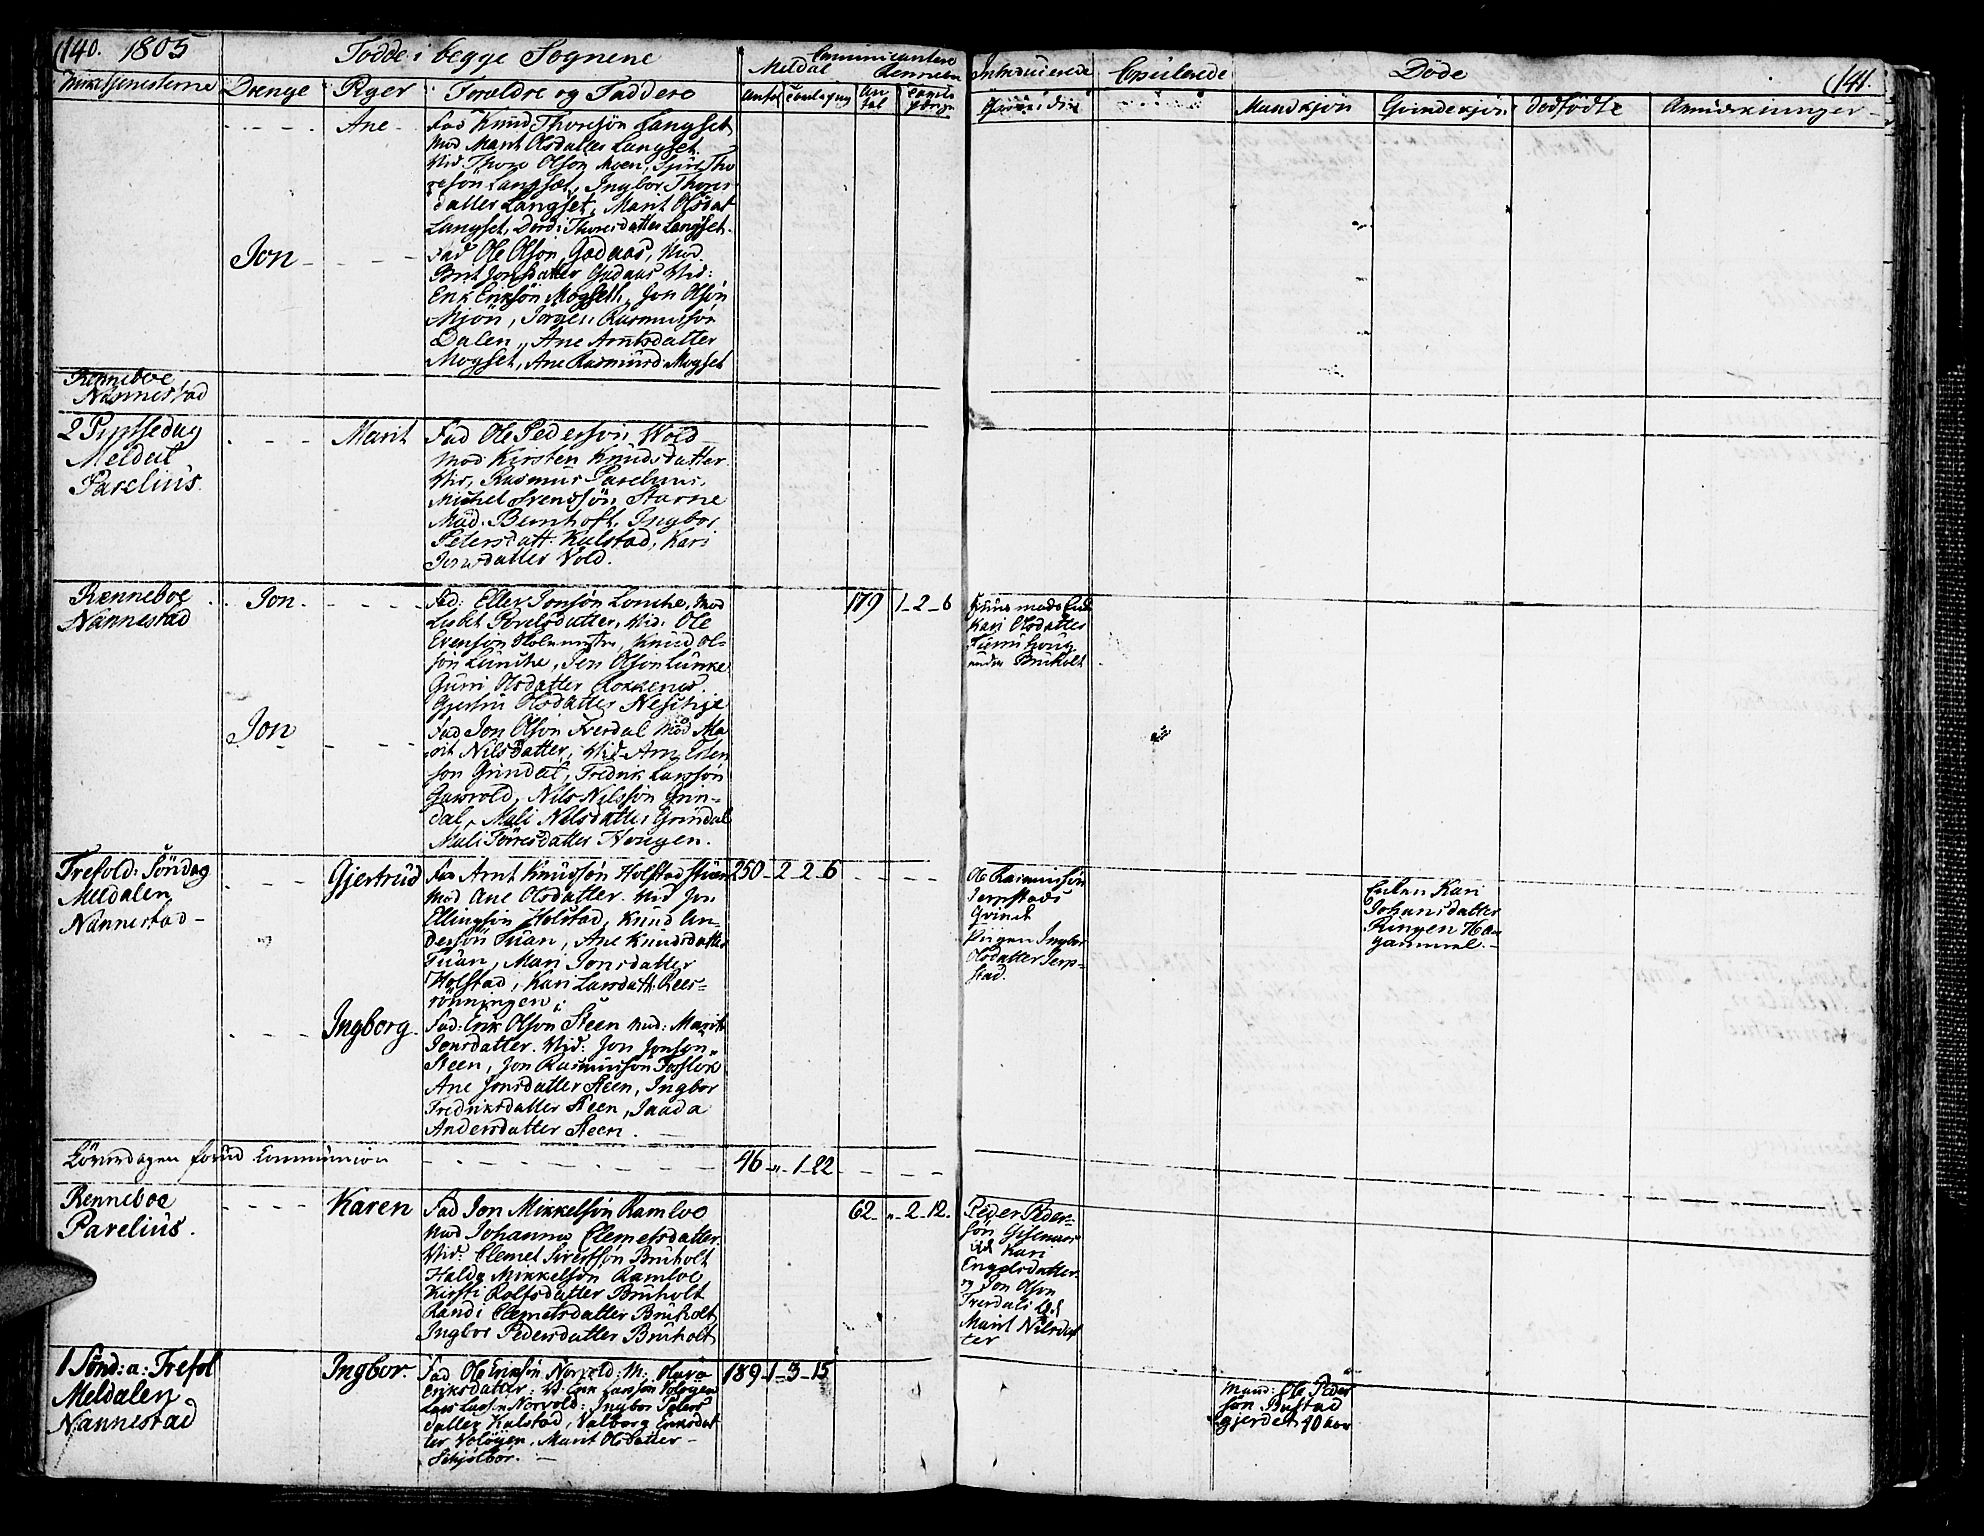 140. 1805
Fødde i begge Sognene
Meldal
Communicantere
Rennebu
Introducerede
Copulerede
Døde
141.
Kirketjenesterne
Drenge
Piger
Forældre og Faddere
Antal
An-
tal
Mandkjøn
Qvindekjøn
Dødfødte
Anmerkninger
Ane
Fad Knud Thoresøn Langset
Mod Marit Olsdatter Langset
Vid: Thore Olsøn Moen, Sjur Tho
resøn Langset, Ingbor Thores
datter Langset, Marit Olsdat
Langset, Dord: Thoresdatter Langset.
Jon
Fad Ole Olsøn Gadaas, Mod
Brit Jonsdatter Gadaas Vid:
Erik Eriksøn Mogseth, Jon Olsøn
Mjøn, Jørgen Rasmussøn
Dalen, Ane Arntsdatter
Mogset, Ane Rasmusd: Mogset
Renneboe
Nannestad
2 Pintsedag
Meldal
Parelius
Marit
Fad Ole Pedersøn Wold
Mod Kirsten Knudsdatter
Vid, Rasmus Parelius,
Michel Svendsøn Starne
Mad. Bernhoft, Ingbor
Petersdatt: Kalstad, Kari
Jonsdatter Vold.
Renneboe
Nannestad
Jon
Fad: Eller Jonsøn Lonche, Mod
Lisbet Povelsdatter, Vid: Ole
Evensøn Holum, Knud Ol-
søn Lunche, Jon Olsøn Lunke
Gurri Olsdatter Rokkenes
Gjertru Olsdatter Neschje
179 1-2-6
Kari Olsdatter
under Bruholt
Jon
Fad Jon Olsøn Frerdal Mod Ma
rit Nilsdatter, Vid Arn Esten
søn Grindal, Fredrik Larssøn
Gunvold, Nils Nilssøn Grin-
dal, Mali Nilsdatter Grindal
Mali Tørresdatter Hougen.
Trefold: Søndag
Meldalen
Nannestad
Gjertrud
Fad Arnt Knudsøn Holstad Stuen
Mod Ane Olsdatter. Vid Jon
Ellingsøn Holstad, Knud An-
dersøn Tuan, Ane Knudsdatter
Tuan, Mari Jonsdatter
Holstad, Kari Larsdatt: Rees-
rønningen.
250 2 2 6
Ole Rasmussøn
Jerpstads
Qvinde
Pigen Ingbor
Olsdatter Jerp-
stad.
Enken Kari
Johansdatter
Ringen
gammel
Ingborg
Fad: Erik Olsøn Steen Mod: Marit
Jonsdatter. Vid: Jon Jonsøn
Steen, Jon Rasmussøn Fosflok
Ane Jonsdatter Steen, Ingbor
Fredriksdatter Steen,
Andersdatter Steen.
Løverdagen forud Communion
46 " 1 22
Renneboe
Parelius.
Karen
Fad Jon Mikkelsøn Ramloe
Mod Johanna Clemetsdatter.
Vid: Clemet Sivertsøn Bruholt
Haldo Mikkelsøn Ramloe
Kirsti Rolfsdatter Bruholt
Randi Clemetsdatter Bruholt
Ingbor Pedersdatter Bruholt
62 " 2-12.
Peder Peder-
søn Gisenaas
Kari
Engelsdatter
og Jon Olsøn
Frerdals
Marit Nilsdat
ter
1 Sønd: a: Trefol
Meldalen
Nannestad
Ingbor
Fad Ole Eriksøn Norvold: M:
Eriksdatter: V: Erik Larssøn
Lars Larsøn Norvold: Ingbor Peters
datter Kalstad, Valborg Eriksdat
ter, Marit Olsdatter
Schjølbor.
189 1-3-15
Mand: Ole Peder
søn Bustad
gjerdet 40 aar